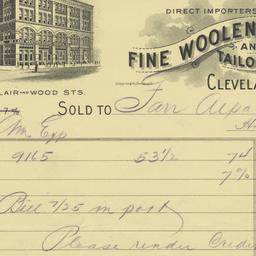 DIRECT IMPORTERS
FINE WOOLEN
AN
TAILO
CLEVEL
LAIR AND WOOD STS.
SOLD TO Farr Alpa
Am Exp
9165 53 1/2 74
7%
Bill 7/25 in post
Please render Credi